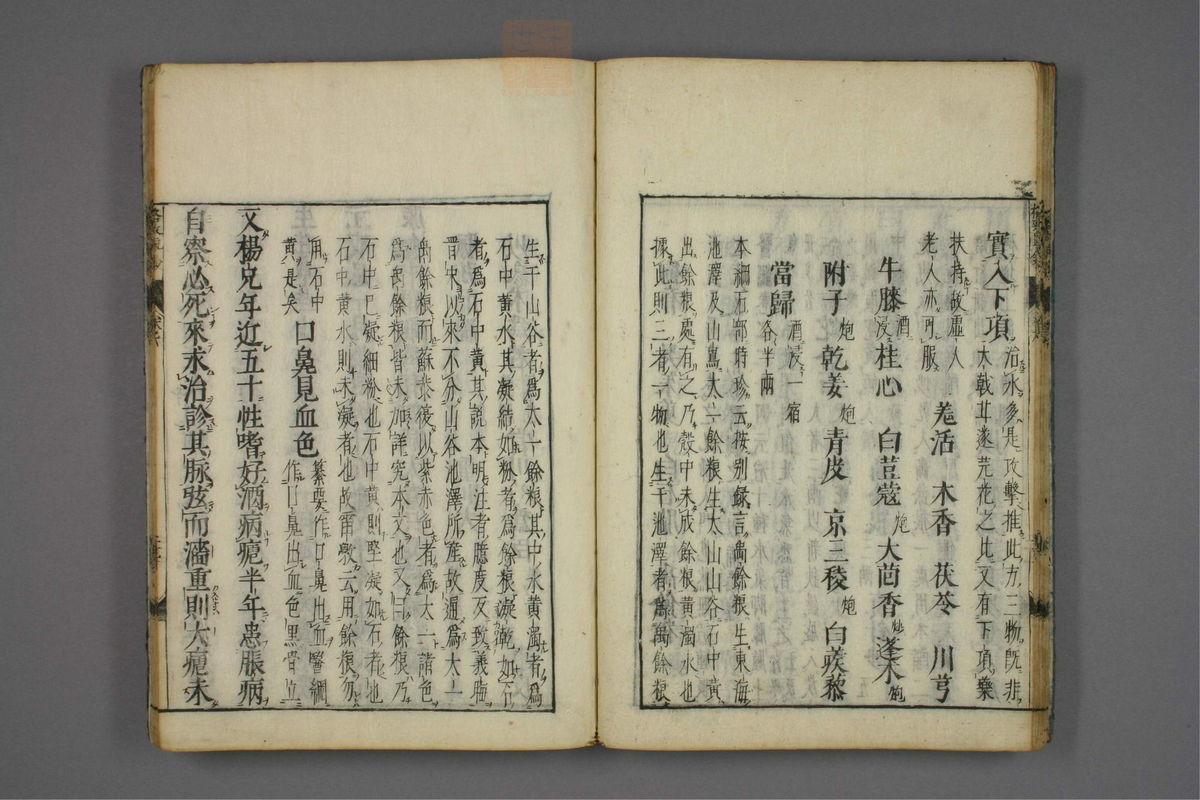 實入下項
治水多是攻擊推此方三物既非
大戟甘遂芫花之比又有下項藥
扶持故虛人
老人亦可服
羗活 木香 茯苓 川芎
牛膝酒浸 桂心 白荳蔻炮 大茴香炒 蓬朮炮
附子炮 乾姜炮 青皮 京三稜炮 白蒺藜
酒浸一宿
當歸各半兩
本綱石部時珍云按别録言禹餘粮生東海
池澤及山島太一餘粮生太山山谷石中黄
出餘粮處有之乃殻中未成餘粮黄濁水也
據此則三者一物也生于池澤者爲禹餘粮
生于山谷者爲太一餘粮其中水黄濁者爲
石中黄水其凝結如粉者爲餘粮凝乾如石
者爲石中黄其說本明注者臆度反致義晦
晋宋以來不分山谷池澤所産故通爲太一
禹餘粮而蘇恭復以紫赤色者爲太一諸色
爲禹餘粮皆未加詳究本文也又曰餘粮乃
石中已凝細粉也石中黄則堅凝如石者也
石中黄水則未凝者也故雷斅云用餘粮勿
用石中
黄是矣
口鼻見血色
纂要作口鼻出血醫綱
作口鼻出血色黒皆立
又楊兄年近五十性嗜好酒病瘧半年患脹病
自察必死來求治診其脉弦而濇重則大瘧未